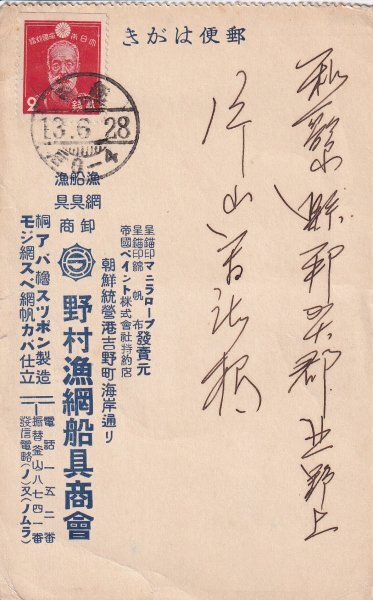 郵便はがき
大日本帝國郵便
2
銭
13.6.28
和歌山縣那賀郡上野上
片山
呈錨印マニラロープ
呈錨印錦帆布 發賣元
帝國ペイント株式會社特約店
朝鮮統營港吉野町海岸通り
漁網
船具
漁具
卸商
野村漁網船具商會
桐アバ櫓スツポン製造
モジ網スベ網帆カバ仕立
電話一五二番
振替釜山八七四一番
發信電略(ノ)又(ノムラ)